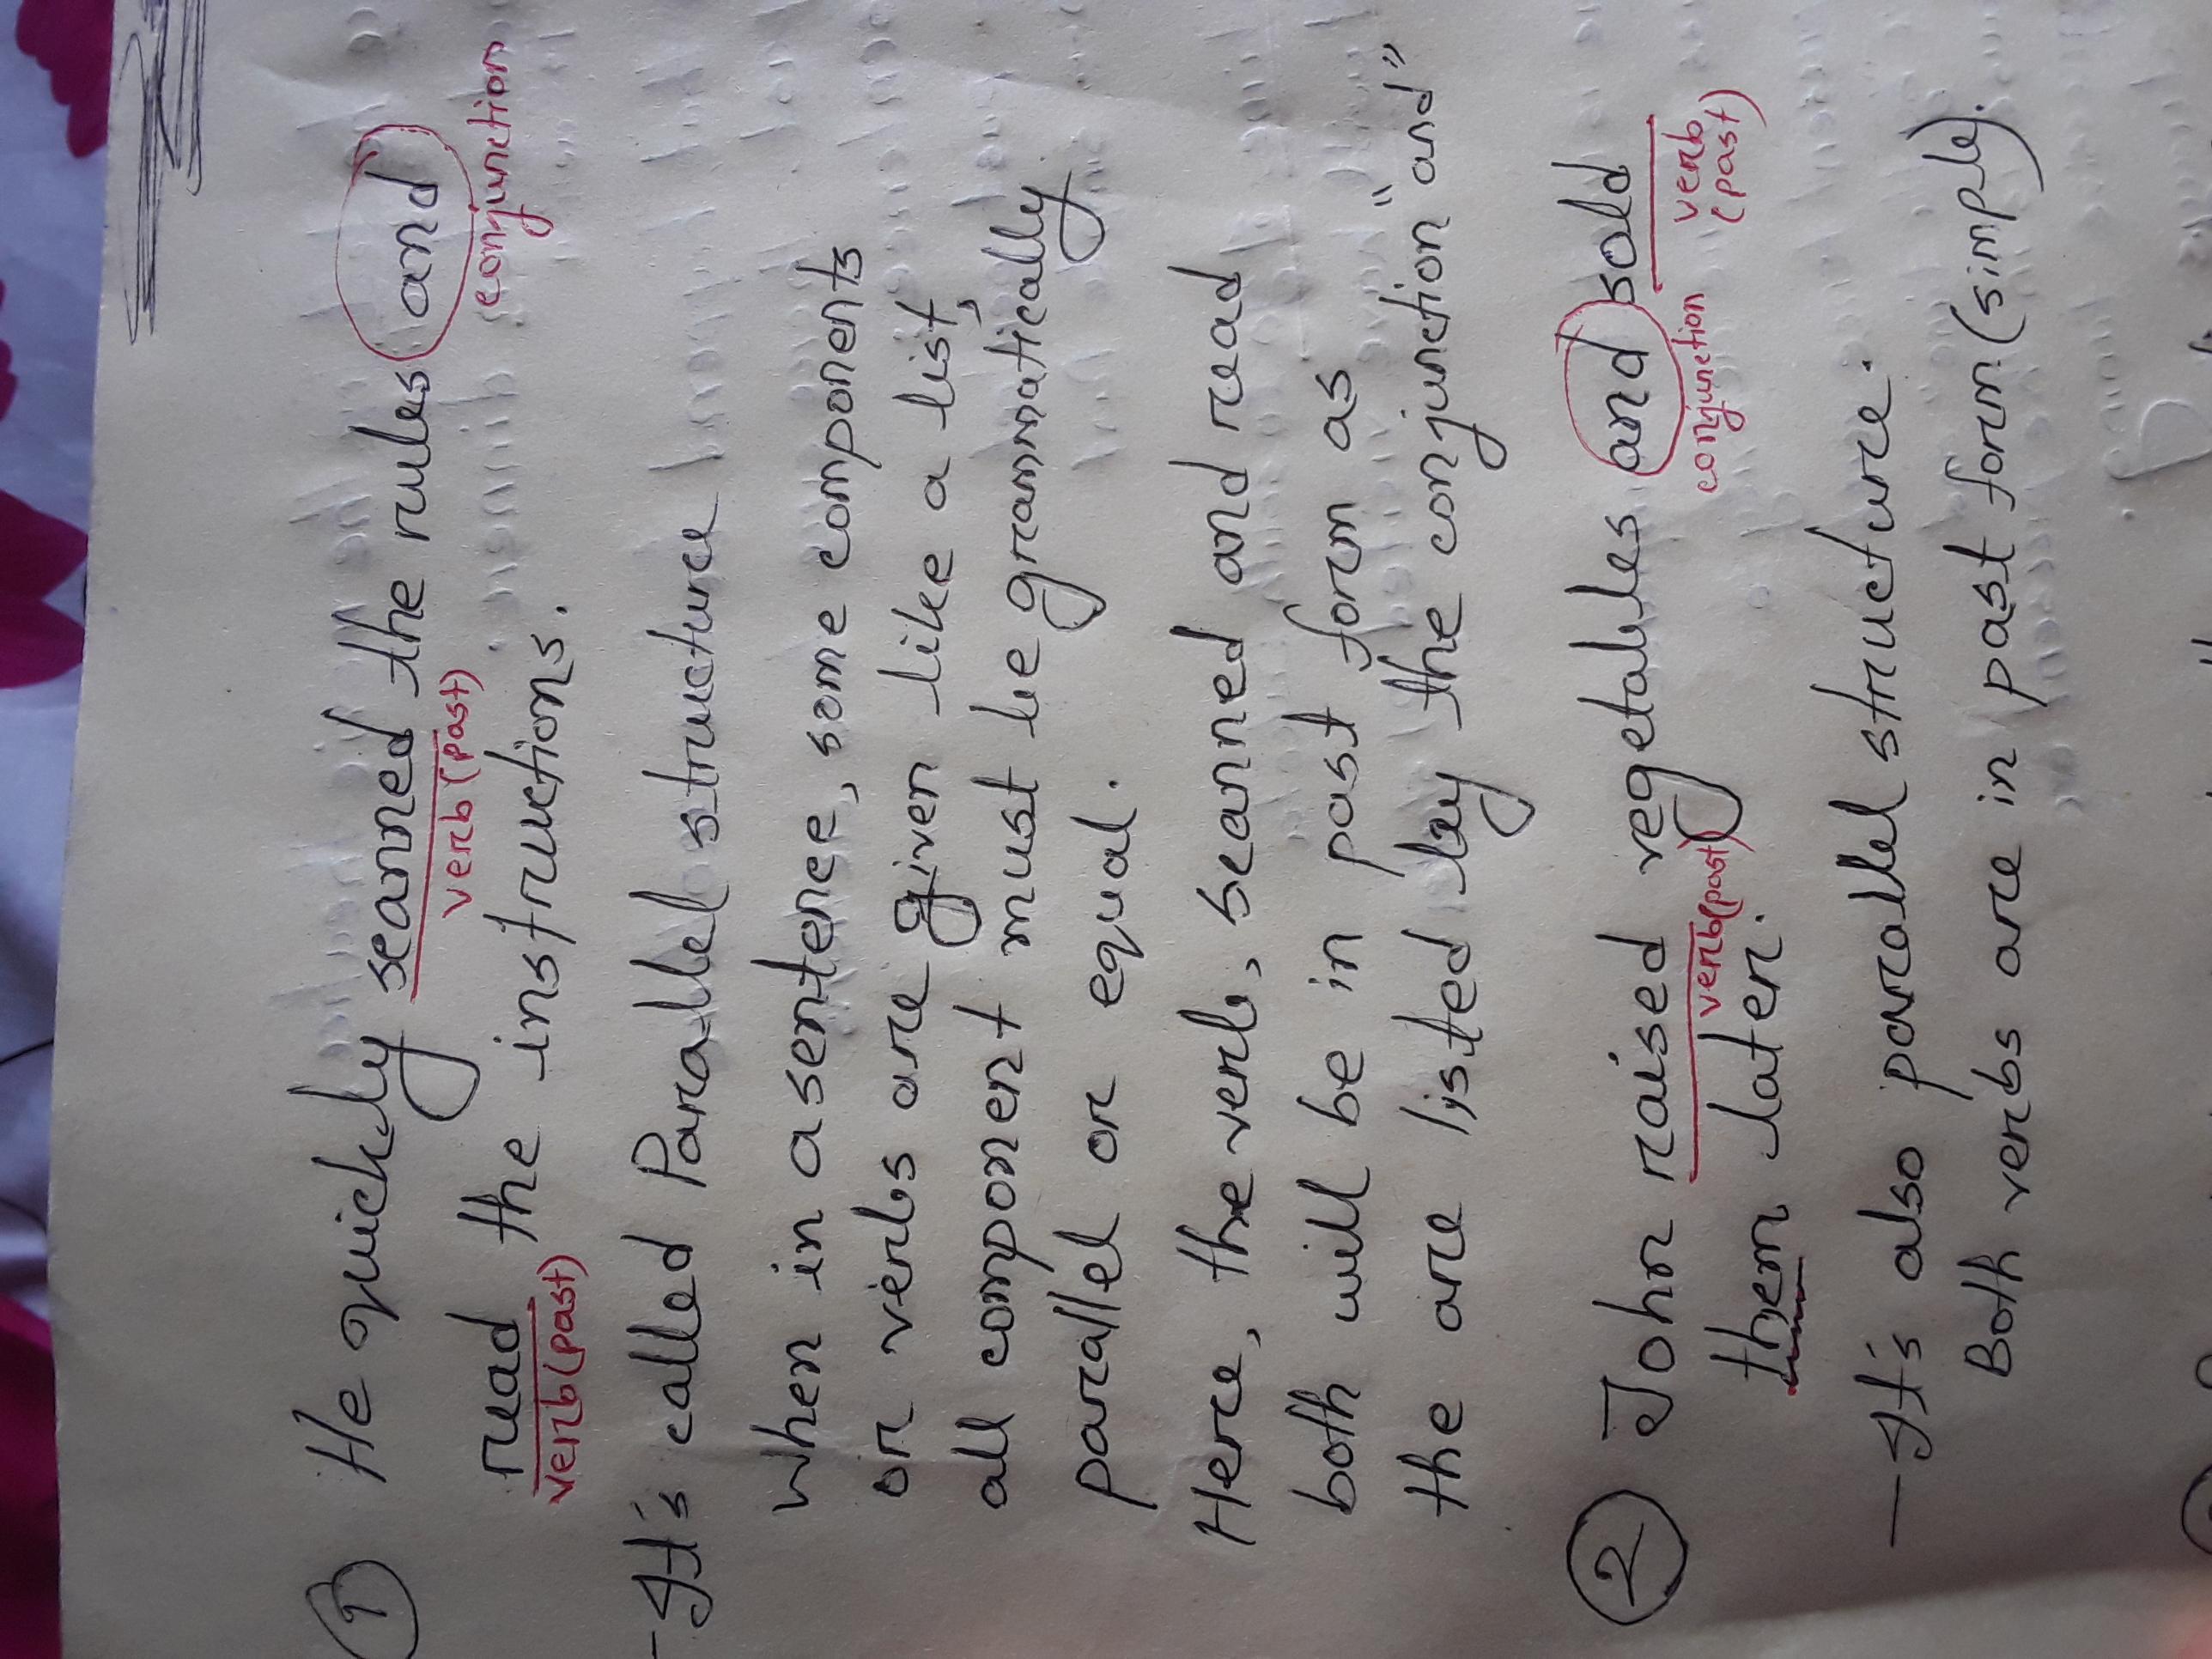 ① He quickly scanned the rules and
verb (past)
conjunction
read the instructions.
verb (past)
- It's called Parallel structure
when in a sentence, some components
or verbs are given like a list,
all component must be grammatically
parallel or equal.
Here, the verb, scanned and read
both will be in past form as
the are listed by the conjunction "and"
② John raised vegetables and sold
verb (past)
conjunction
verb
(past)
them later.
- It's also parallel structure.
Both verbs are in past form (simple).